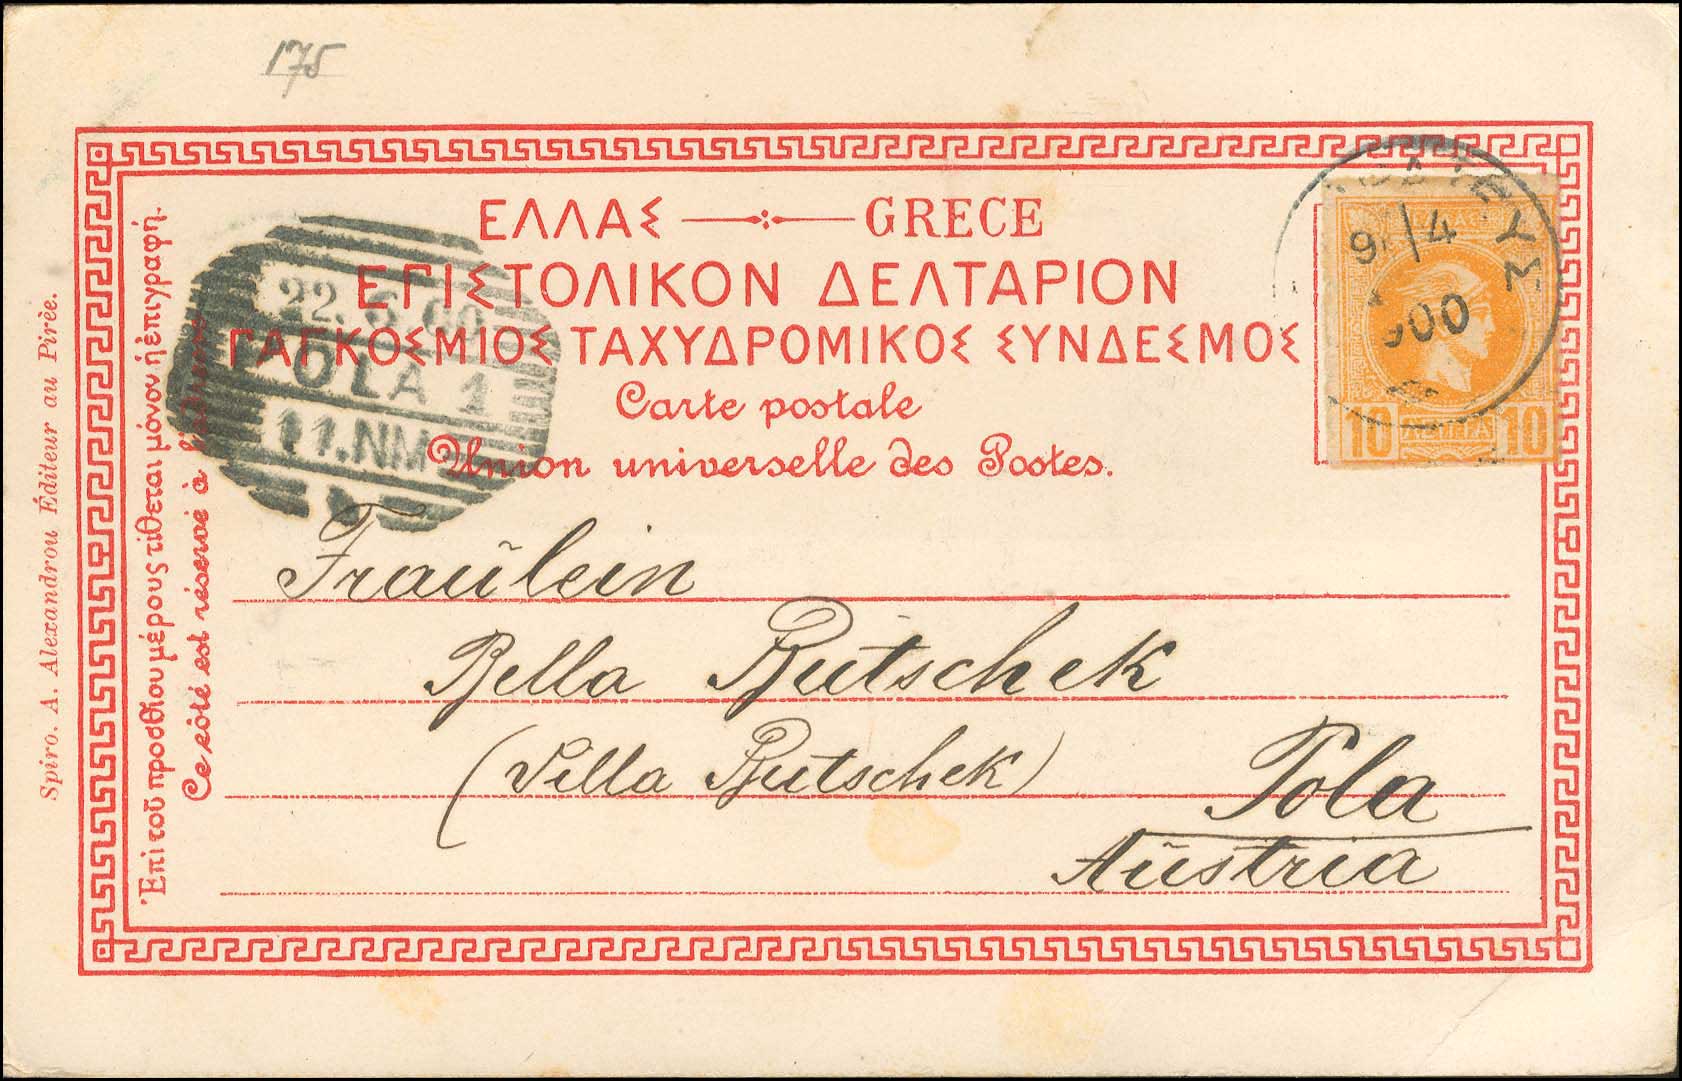 175
ΕΛΛΑΣ GRECE
ΕΠΙΣΤΟΛΙΚΟΝ ΔΕΛΤΑΡΙΟΝ
ΠΑΓΚΟΣΜΙΟΣ ΤΑΧΥΔΡΟΜΙΚΟΣ ΣΥΝΔΕΣΜΟΣ
Carte postale
Union universelle des Postes.
Spiro. A. Alexandrou Éditeur au Pirèe.
Ἐπὶ τοῦ προσθίου μέρους τίθεται μόνον ἡ ἐπιγραφή.
Ce côté est réservé à
22. 00
POLA 1
11.NM
9 /4
900
10 ΛΕΠΤΑ 10
Fraülein
Bella Butschek
(Villa Butschek)
Pola
Aüstria